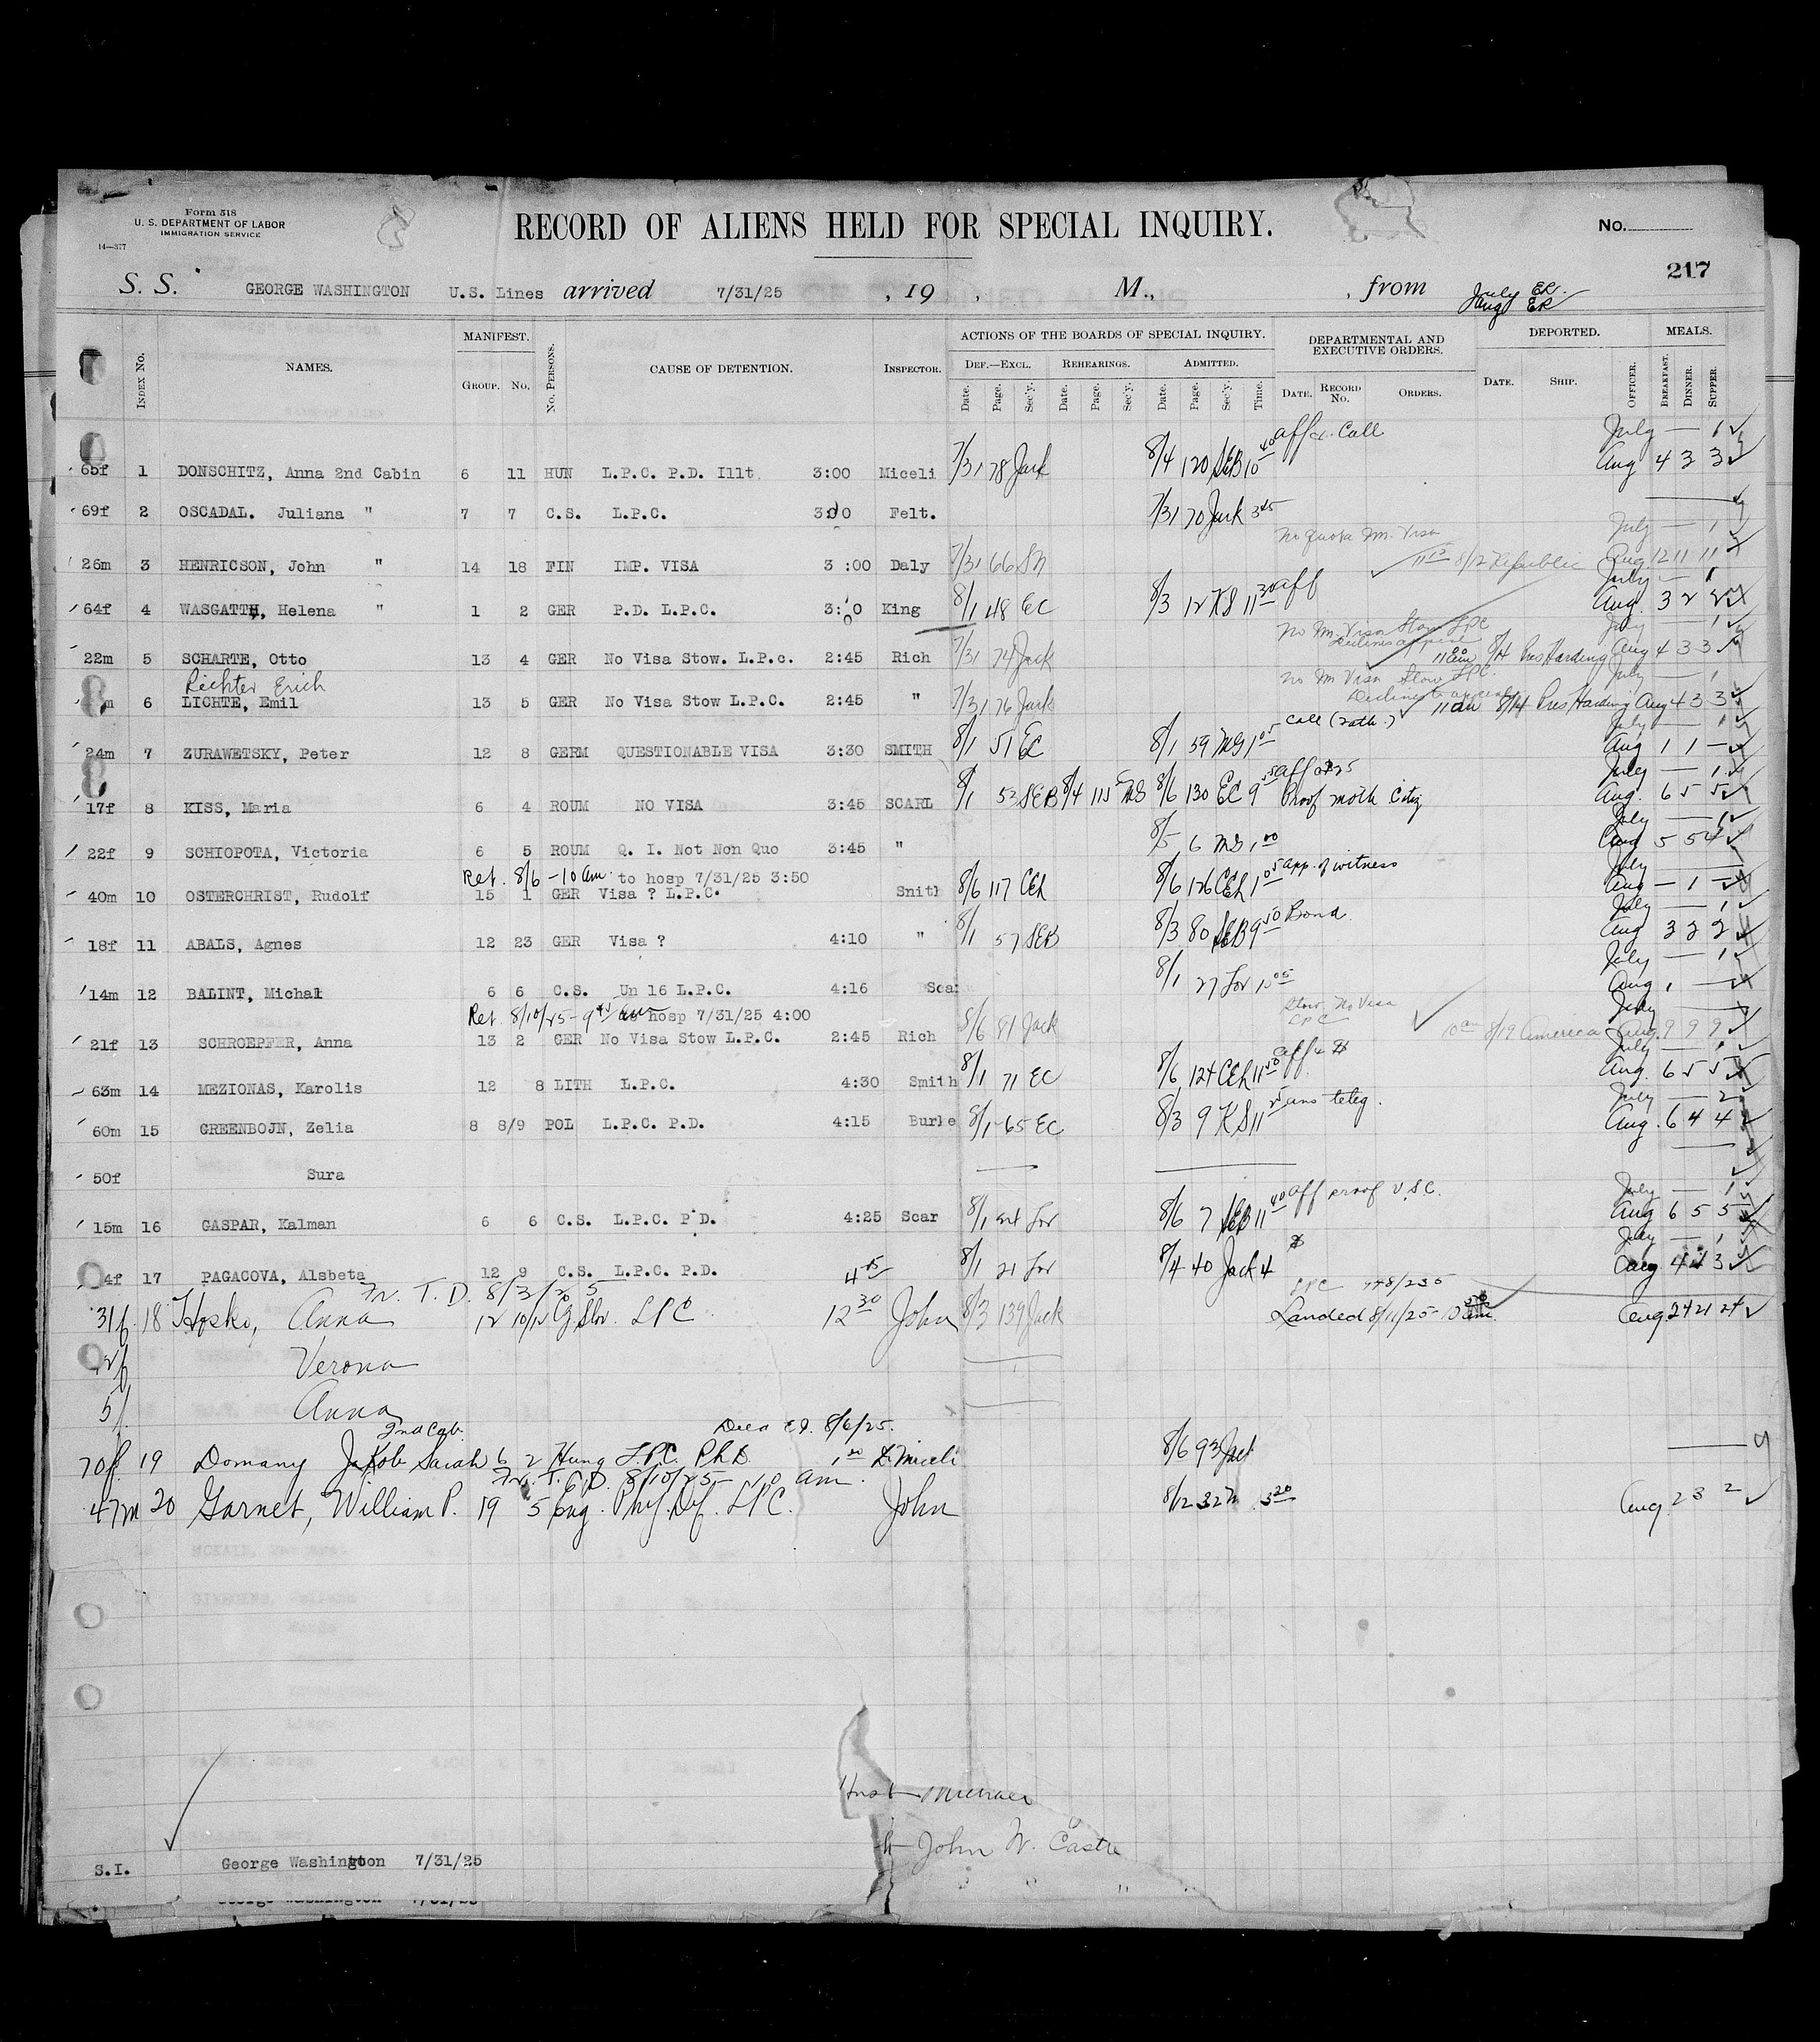 Form 518
U. S. DEPARTMENT OF LABOR
IMMIGRATION SERVICE
14—377
RECORD OF ALIENS HELD FOR SPECIAL INQUIRY.
No.
217
S. S. GEORGE WASHINGTON U.S. Lines arrived 7/31/25 , 19 , M., , from
July ER.
Aug ER
INDEX No. NAMES. MANIFEST. GROUP. No. No. PERSONS. CAUSE OF DETENTION. INSPECTOR. ACTIONS OF THE BOARDS OF SPECIAL INQUIRY. DEF.—EXCL. REHEARINGS. ADMITTED. DEPARTMENTAL AND EXECUTIVE ORDERS. DEPORTED. MEALS.
Date. Page. Sec'y. Date. Page. Sec'y. Date. Page. Sec'y. Time. DATE. RECORD No. ORDERS. DATE. SHIP. OFFICER. BREAKFAST. DINNER. SUPPER.
July — 1
65f 1 DONSCHITZ, Anna 2nd Cabin 6 11 HUN L.P.C. P.D. Illt 3:00 Miceli 7/31 78 Jack 8/4 120 SEB 10 40 aff Call Aug 4 3 3
69f 2 OSCADAL. Juliana " 7 7 C.S. L.P.C. 3:00 Felt. 7/31 70 Jack 3 45
No quota Im. Visa July — 1
26m 3 HENRICSON, John " 14 18 FIN IMP. VISA 3 :00 Daly 7/31 66 SN 8/12 Republic Aug 12 11 11
July — 1
64f 4 WASGATTH, Helena " 1 2 GER P.D. L.P.C. 3:00 King 8/1 48 EC 8/3 12 KS 11 30 aff Aug. 3 2 2
No Im. Visa Stow LPC July — 1
22m 5 SCHARTE, Otto 13 4 GER No Visa Stow. L.P.c. 2:45 Rich 7/31 74 Jack 11 am 8/4 Pres Harding Aug 4 3 3
Richter Erich
No Im Visa Stow LPC. July — 1
Declines to appeal
m 6 LICHTE, Emil 13 5 GER No Visa Stow L.P.C. 2:45 " 7/31 76 Jack 11 am 8/4 Pres Harding Aug 4 3 3
July — 1
24m 7 ZURAWETSKY, Peter 12 8 GERM QUESTIONABLE VISA 3:30 SMITH 8/1 51 EC 8/1 59 MG 1 05 Call Aug 1 1 —
July — 1
17f 8 KISS, Maria 6 4 ROUM NO VISA 3:45 SCARL 8/1 53 SEB 8/4 115 MS 8/6 130 EC 9 Proof moth Citz Aug. 6 5 5
July — 1
22f 9 SCHIOPOTA, Victoria 6 5 ROUM Q. I. Not Non Quo 3:45 " 8/5 6 MG 1 00 Aug 5 5 4
Ret. 8/6 - 10 am. to hosp 7/31/25 3:50 July
40m 10 OSTERCHRIST, Rudolf 15 1 GER Visa ? L.P.C. Smith 8/6 117 CEL 8/6 126 CEL 1 05 app. of witness Aug — 1 —
July — 1
18f 11 ABALS, Agnes 12 23 GER Visa ? 4:10 " 8/1 57 SEB 8/3 80 SEB 9 50 Bond Aug 3 2 2
July — 1
14m 12 BALINT, Michal 6 6 C.S. Un 16 L.P.C. 4:16 Scar 8/1 27 For 10 05 Aug 1 —
Ret 8/10/25 - 9 45 am to hosp 7/31/25 4:00 Stow. No Visa LPC July
21f 13 SCHROEPFER, Anna 13 2 GER No Visa Stow L.P.C. 2:45 Rich 8/6 81 Jack 10 am 8/19 America Aug. 9 9 9
July — 1
63m 14 MEZIONAS, Karolis 12 8 LITH L.P.C. 4:30 Smith 8/1 71 EC 8/6 124 CEL 11 50 aff & $ Aug. 6 5 5
July — 2
60m 15 GREENBOJN, Zelia 8 8/9 POL L.P.C. P.D. 4:15 Burke 8/1 65 EC 8/3 9 KS 11 ans teleg. Aug. 6 4 4
50f Sura
July — 1
15m 16 GASPAR, Kalman 6 6 C.S. L.P.C. P.D. 4:25 Scar 8/1 For 8/6 7 SEB 11 40 aff proof U.S.C. Aug 6 5 5
July — 1
4f 17 PAGACOVA, Alsbeta 12 9 C.S. L.P.C. P.D. 4 15 8/1 21 For 8/4 40 Jack 4 $ Aug 4 4 3
Fr. T. D. 8/3/25 LPC
31f 18 Hosko, Anna 12 10/12 Cz Slov. LPC 12 30 John 8/3 139 Jack Landed 8/11/25 - 10 am. Aug. 24 21 24
Verona
5f Anna
2nd Cab. 8/6/25.
70f 19 Domany Jakob Sarah 6 2 Hung L.P.C. Ph.D. 1 D. Miceli 8/6 93 Jack
Fr. T. D. 8/10/25 - 10 am.
47m 20 Garnet, William P. 19 5 Eng. Phy. Def. LPC. John 8/12 32 3 20 Aug. 2 3 2
John W. Castre
" "
S.I. George Washington 7/31/25